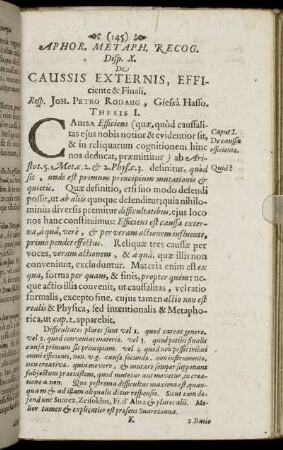 (145)
APHOR. METAPH. RECOG.
Disp. X.
De
CAUSSIS EXTERNIS, EFFI-
ciente & Finali.
Resp. JOH. PETRO RODAHG, Giessâ Hasso.
THESIS I.
CAUSSA Efficiens (quæ, quòd caussali-
tas ejus nobis notior & evidentior sit,
& in reliquarum cognitionem hinc
nos deducat, præmittitur) ab Ari-
stot. 5. Met. c. 2. & 2. Phys. c. 3. definitur, quòd
sit, unde est primum principium mutationis &
quietis. Quæ definitio, etsi suo modo defendi
possit, ut ab aliis quoque defenditur; quia nihilo-
minus diversis premitur difficultatibus, ejus loco
nos hanc constituimus: Efficiens est caussa exter-
na, à quâ, verè, & per veram actionem influente,
primò pendet effectus. Reliquæ tres caussæ per
voces, veram actionem, & à quâ, quæ illis non
conveniunt, excluduntur. Materia enim est ex
qua, forma per quam, & finis, propter quem: ne-
que actio illis convenit, ut caussalitas, vel ratio
formalis, excepto fine, cujus tamen actio non est
realis & Physica, sed intentionalis & Metapho-
rica, ut cap. 2. apparebit.
Caput I.
De caussa
efficiente.
Quid?
Difficultates plures sunt vel 1. quod careat genere.
vel 2. quod conveniat materiæ. vel 3. quod potius finalis
causa primum sit principium. vel 4. quod non possit tribui
omni efficienti, non. v. g. causæ secundæ. non instrumento,
non creativæ. quia movere, & mutare semper supponant
subjectum præexistens, quod mutetur aut moveatur, in crea-
tione a. non. Quæ postrema difficultas maxima est quan-
quam & ad illam aliqualis detur responsio. Sic ut eam de-
fendunt Suarez, Zeisoldus, Fr. à Abra & plures alii. Me-
lior tamen & explicatior est præsens Suareziana.
K
2. Ratio